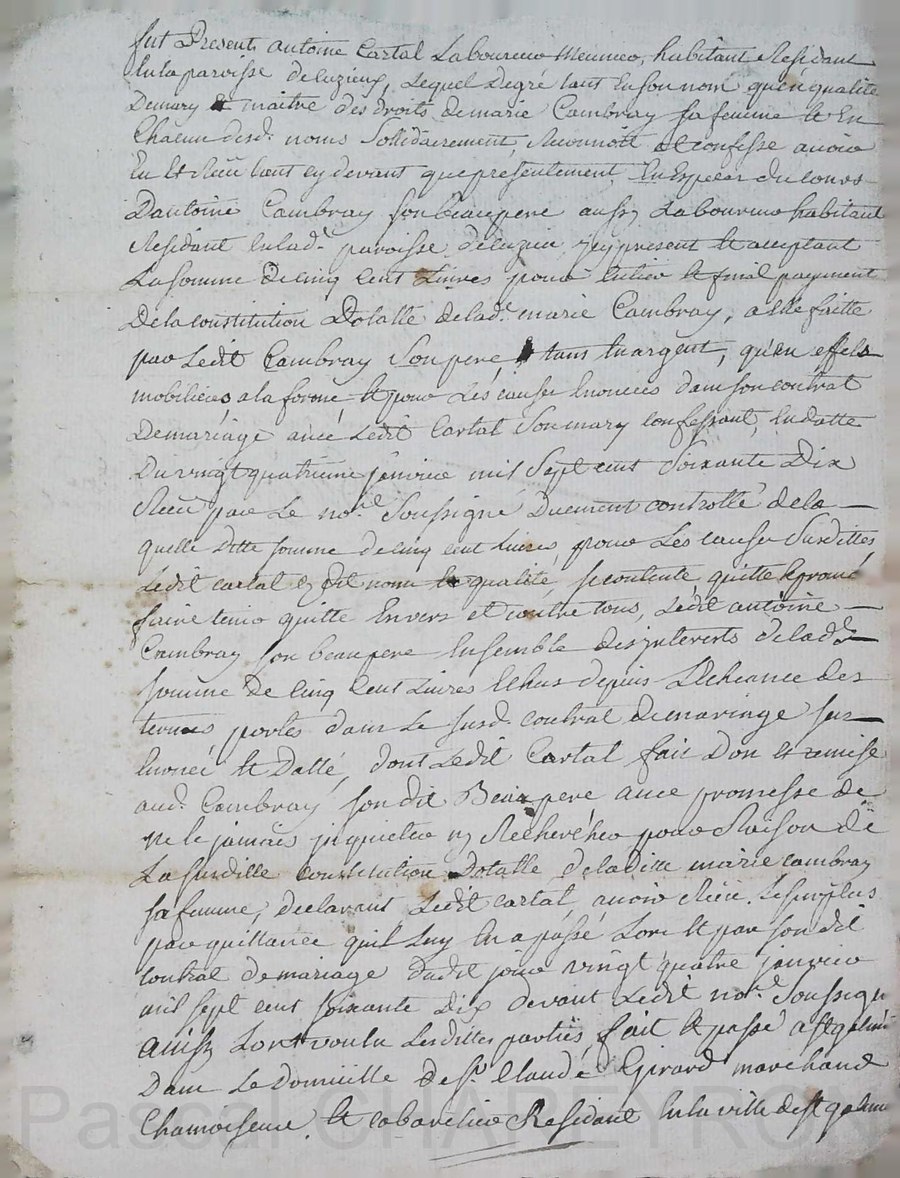 fut Present antoine Cartal Laboureur Meunier, habitant Residant
En la paroisse de luzieux, Lequel de gré tant En son nom qu'en qualité
De mary et maitre des droits de marie Cambray sa femme et En
Chacun desd. noms Sollidairement, Reconnoit et confesse avoir
Eu et Reçu tant cy devant que presentement, En Especes du cours
D'antoine Cambray son beaupere aussy Laboureur habitant
Residant En lad. paroisse de luzieu, icy present et acceptant
La somme de cinq Cent Livres pour Entier et final payement
De la constitution Dotalle de lad. marie Cambray, a Elle faitte
par Ledit Cambray Son pere, tant En argent, qu'en effets
mobiliers, a la forme et pour Les causes Enoncées dans son contrat
De mariage avec Ledit Cartal Son mary confessant, En datte
Du vingt quatrieme janvier mil Sept cent Soixante Dix
Reçu par Le no.re Soussigné Duement controllé, de la
quelle Ditte somme de cinq cent livres pour Les causes Susdittes
Ledit Cartal Es dit noms et qualité, se contente quitte & promet
faire tenir quitte Envers et contre tous, Ledit antoine
Cambray son beaupere Ensemble des interets de lad.
somme de Cinq Cent Livres Echus depuis L'Echeance des
termes portés dans Le susd. contrat de mariage sus
Enoncé et Datté, dont Ledit Cartal fait Don et remise
aud. Cambray son dit Beaupere avec promesse de
ne le jamais inquietter ny Rechercher pour Raison de
La susditte constitution Dotalle de laditte marie Cambray
sa femme, declarant Ledit Cartal avoir Reçu Le surplus
par quittance qu'il Luy En a passé Lors et par son dit
contrat de mariage dudit jour vingt quatre janvier
mil sept cent soixante Dix devant Ledit no.re Soussigné
ainsy L'ont voulu Lesdittes parties fait et passé a St galmier
Dans Le Domicille de Sr. Claude Girard marchand
Chamoiseur et cabaretier Residant En la ville de St galmier
Pascal CHAREYRON